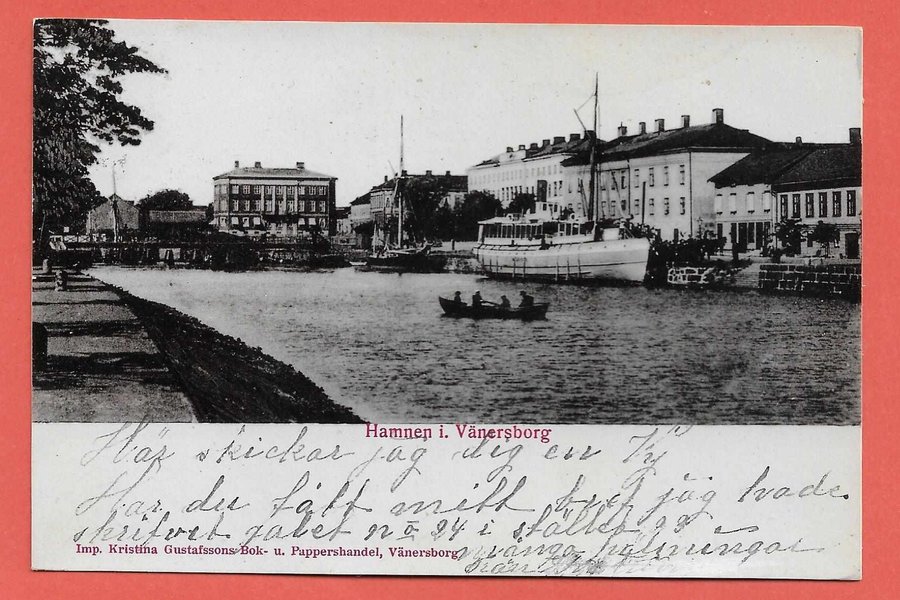 Hamnen i. Vänersborg
Här skickar jag dig en Vy
Har du fått mitt bref jag hade
skrifvet galet nº 24 i stället 99
Imp. Kristina Gustafssons Bok- u. Pappershandel, Vänersborg
många hälsningar
från